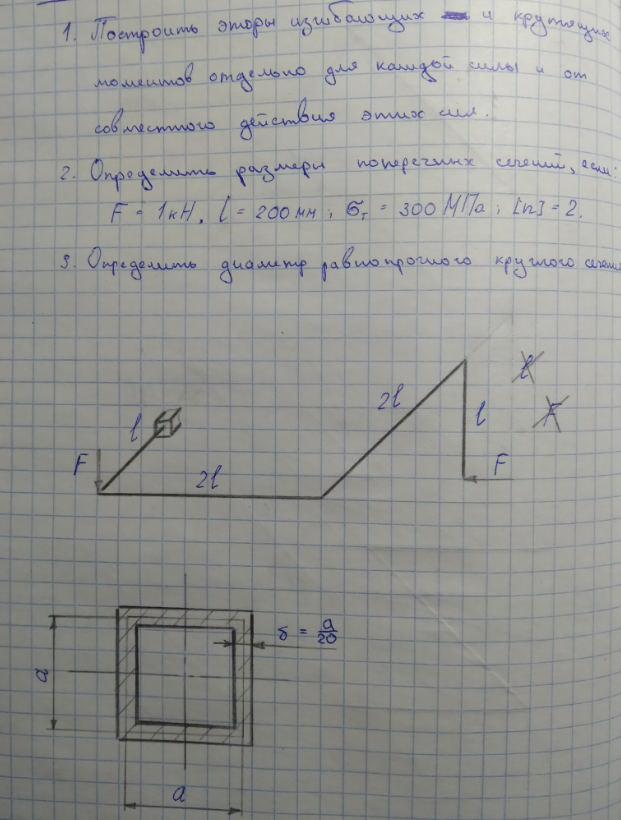 1. Построить эпюры изгибающих и крутящих
моментов отдельно для каждой силы и от
совместного действия этих сил.
2. Определить размеры поперечных сечений, если:
F = 1кН, l = 200 мм, σт = 300 МПа; [n] = 2.
3. Определить диаметр равнопрочного круглого сечения
l
2l
l
l
F
F
2l
F
δ = a/20
a
a